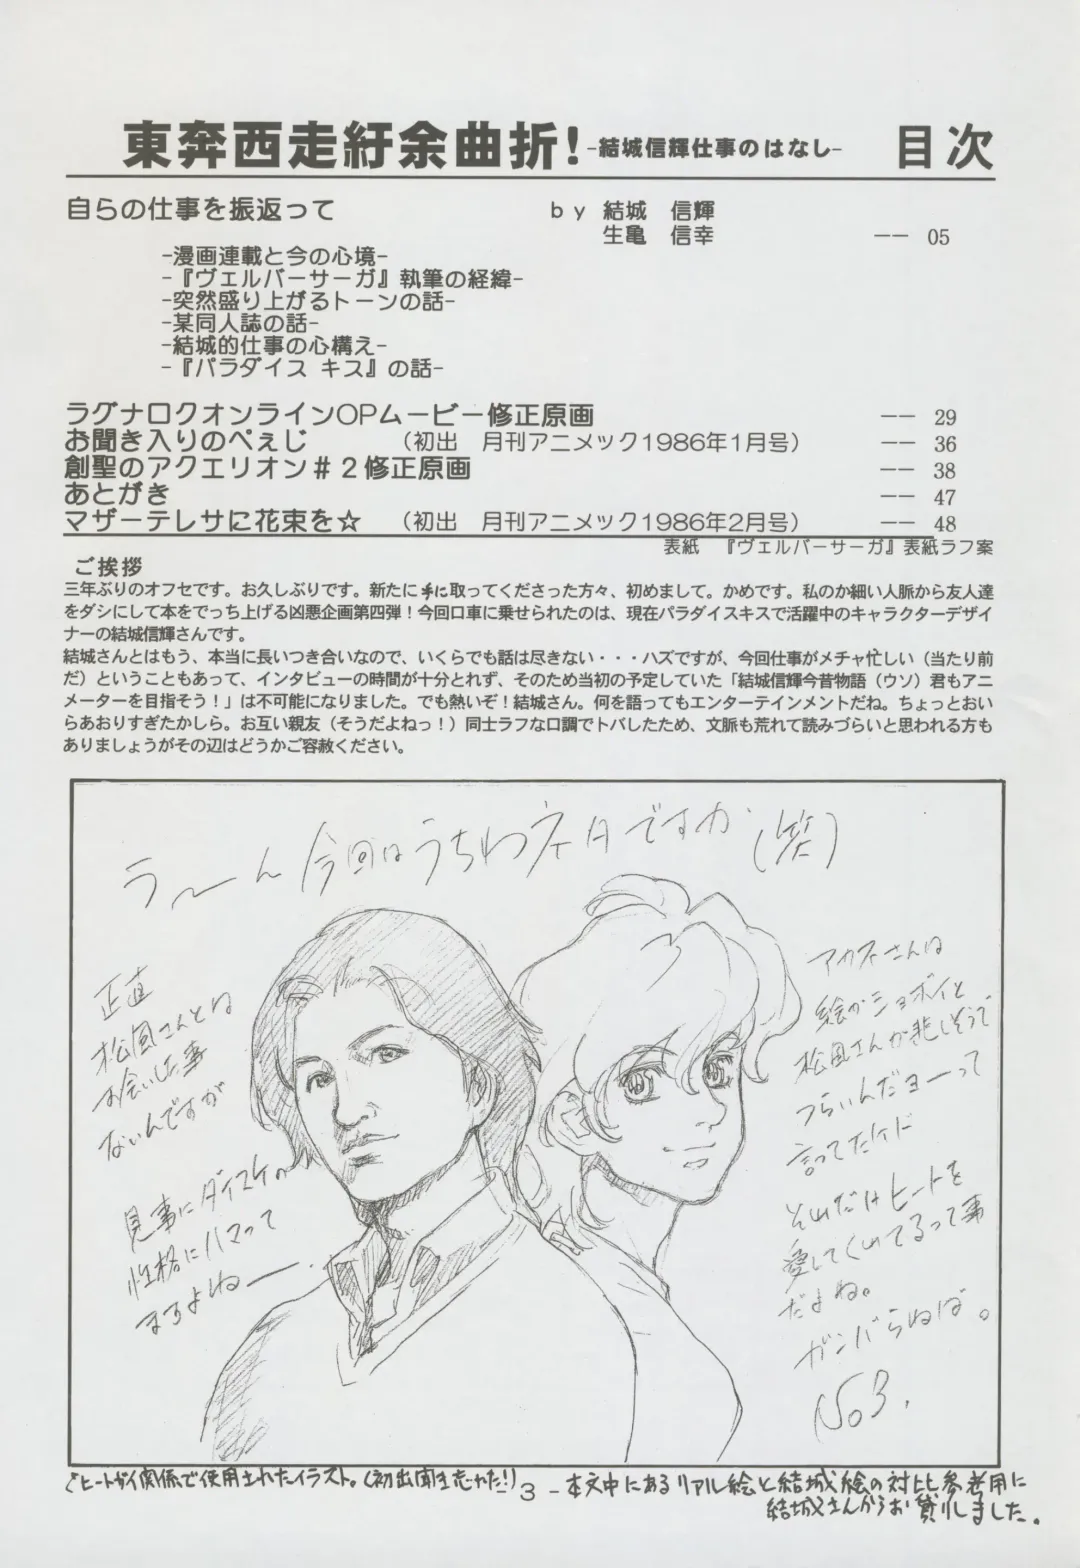 東奔西走紆余曲折！-結城信輝仕事のはなし- 目次
自らの仕事を振返って ｂｙ 結城 信輝
生亀 信幸 ―― 05
-漫画連載と今の心境-
-『ヴェルバーサーガ』執筆の経緯-
-突然盛り上がるトーンの話-
-某同人誌の話-
-結城的仕事の心構え-
-『パラダイス キス』の話-
ラグナロクオンラインOPムービー修正原画 ―― 29
お聞き入りのぺぇじ （初出 月刊アニメック1986年1月号） ―― 36
創聖のアクエリオン＃２修正原画 ―― 38
あとがき ―― 47
マザーテレサに花束を☆ （初出 月刊アニメック1986年2月号） ―― 48
表紙 『ヴェルバーサーガ』表紙ラフ案
ご挨拶
三年ぶりのオフセです。お久しぶりです。新たに手に取ってくださった方々、初めまして。かめです。私のか細い人脈から友人達
をダシにして本をでっち上げる凶悪企画第四弾！今回口車に乗せられたのは、現在パラダイスキスで活躍中のキャラクターデザイ
ナーの結城信輝さんです。
結城さんとはもう、本当に長いつき合いなので、いくらでも話は尽きない・・・ハズですが、今回仕事がメチャ忙しい（当たり前
だ）ということもあって、インタビューの時間が十分とれず、そのため当初の予定していた「結城信輝今昔物語（ウソ）君もアニ
メーターを目指そう！」は不可能になりました。でも熱いぞ！結城さん。何を語ってもエンターテインメントだね。ちょっとおい
らあおりすぎたかしら。お互い親友（そうだよねっ！）同士ラフな口調でトバしたため、文脈も荒れて読みづらいと思われる方も
ありましょうがその辺はどうかご容赦ください。
う〜ん今回はうちわネタですか（笑）
正直
松風さんとは
お会いした事
ないんですが
見事にダイスケの
性格にハマって
ますよねー.
アカネさんは
絵がショボイと
松風さんが悲しそうで
つらいんだヨーって
言ってたケド
それだけヒートを
愛してくれてるって事
だよね。
ガンバらねば。
No3.
ヒートガイ関係で使用されたイラスト。(初出聞き忘れた!)
- 3 -
本文中にあるリアル絵と結城絵の対比参考用に
結城さんからお貸りしました。